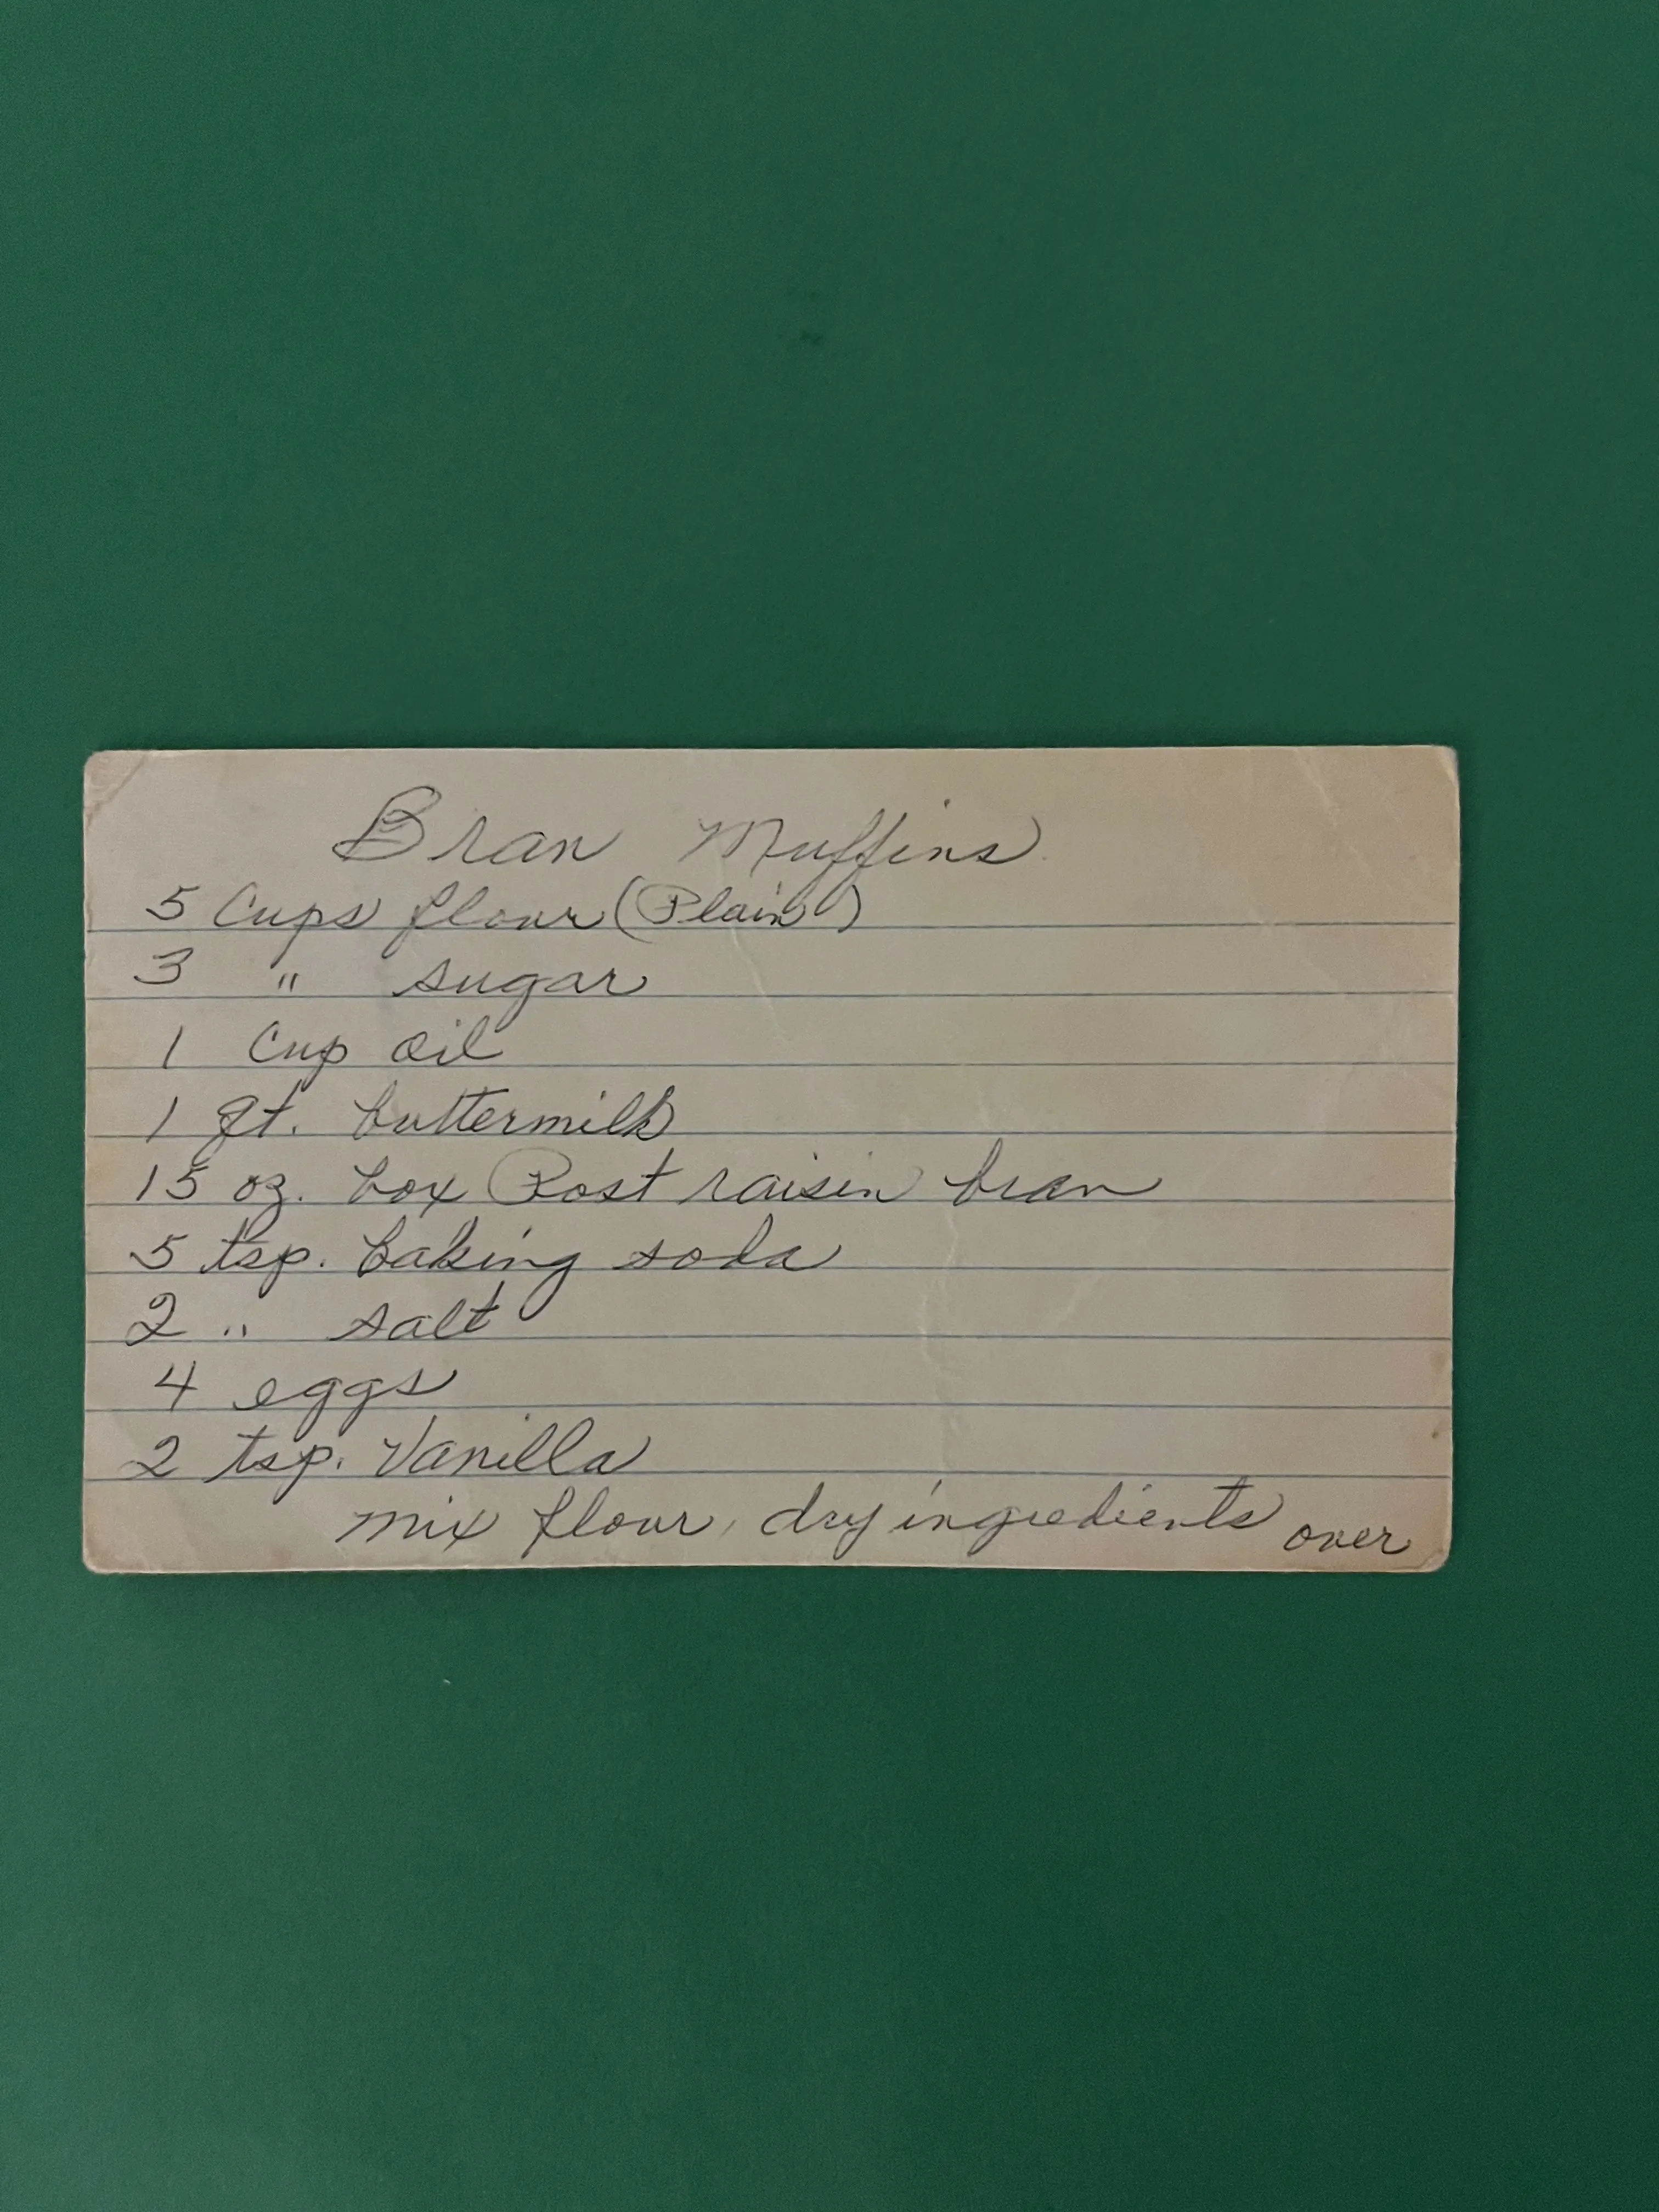 Bran Muffins
5 Cups flour (Plain)
3 " sugar
1 Cup oil
1 qt. buttermilk
15 oz. box Post raisin bran
5 tsp. baking soda
2 " salt
4 eggs
2 tsp. Vanilla
mix flour, dry ingredients over